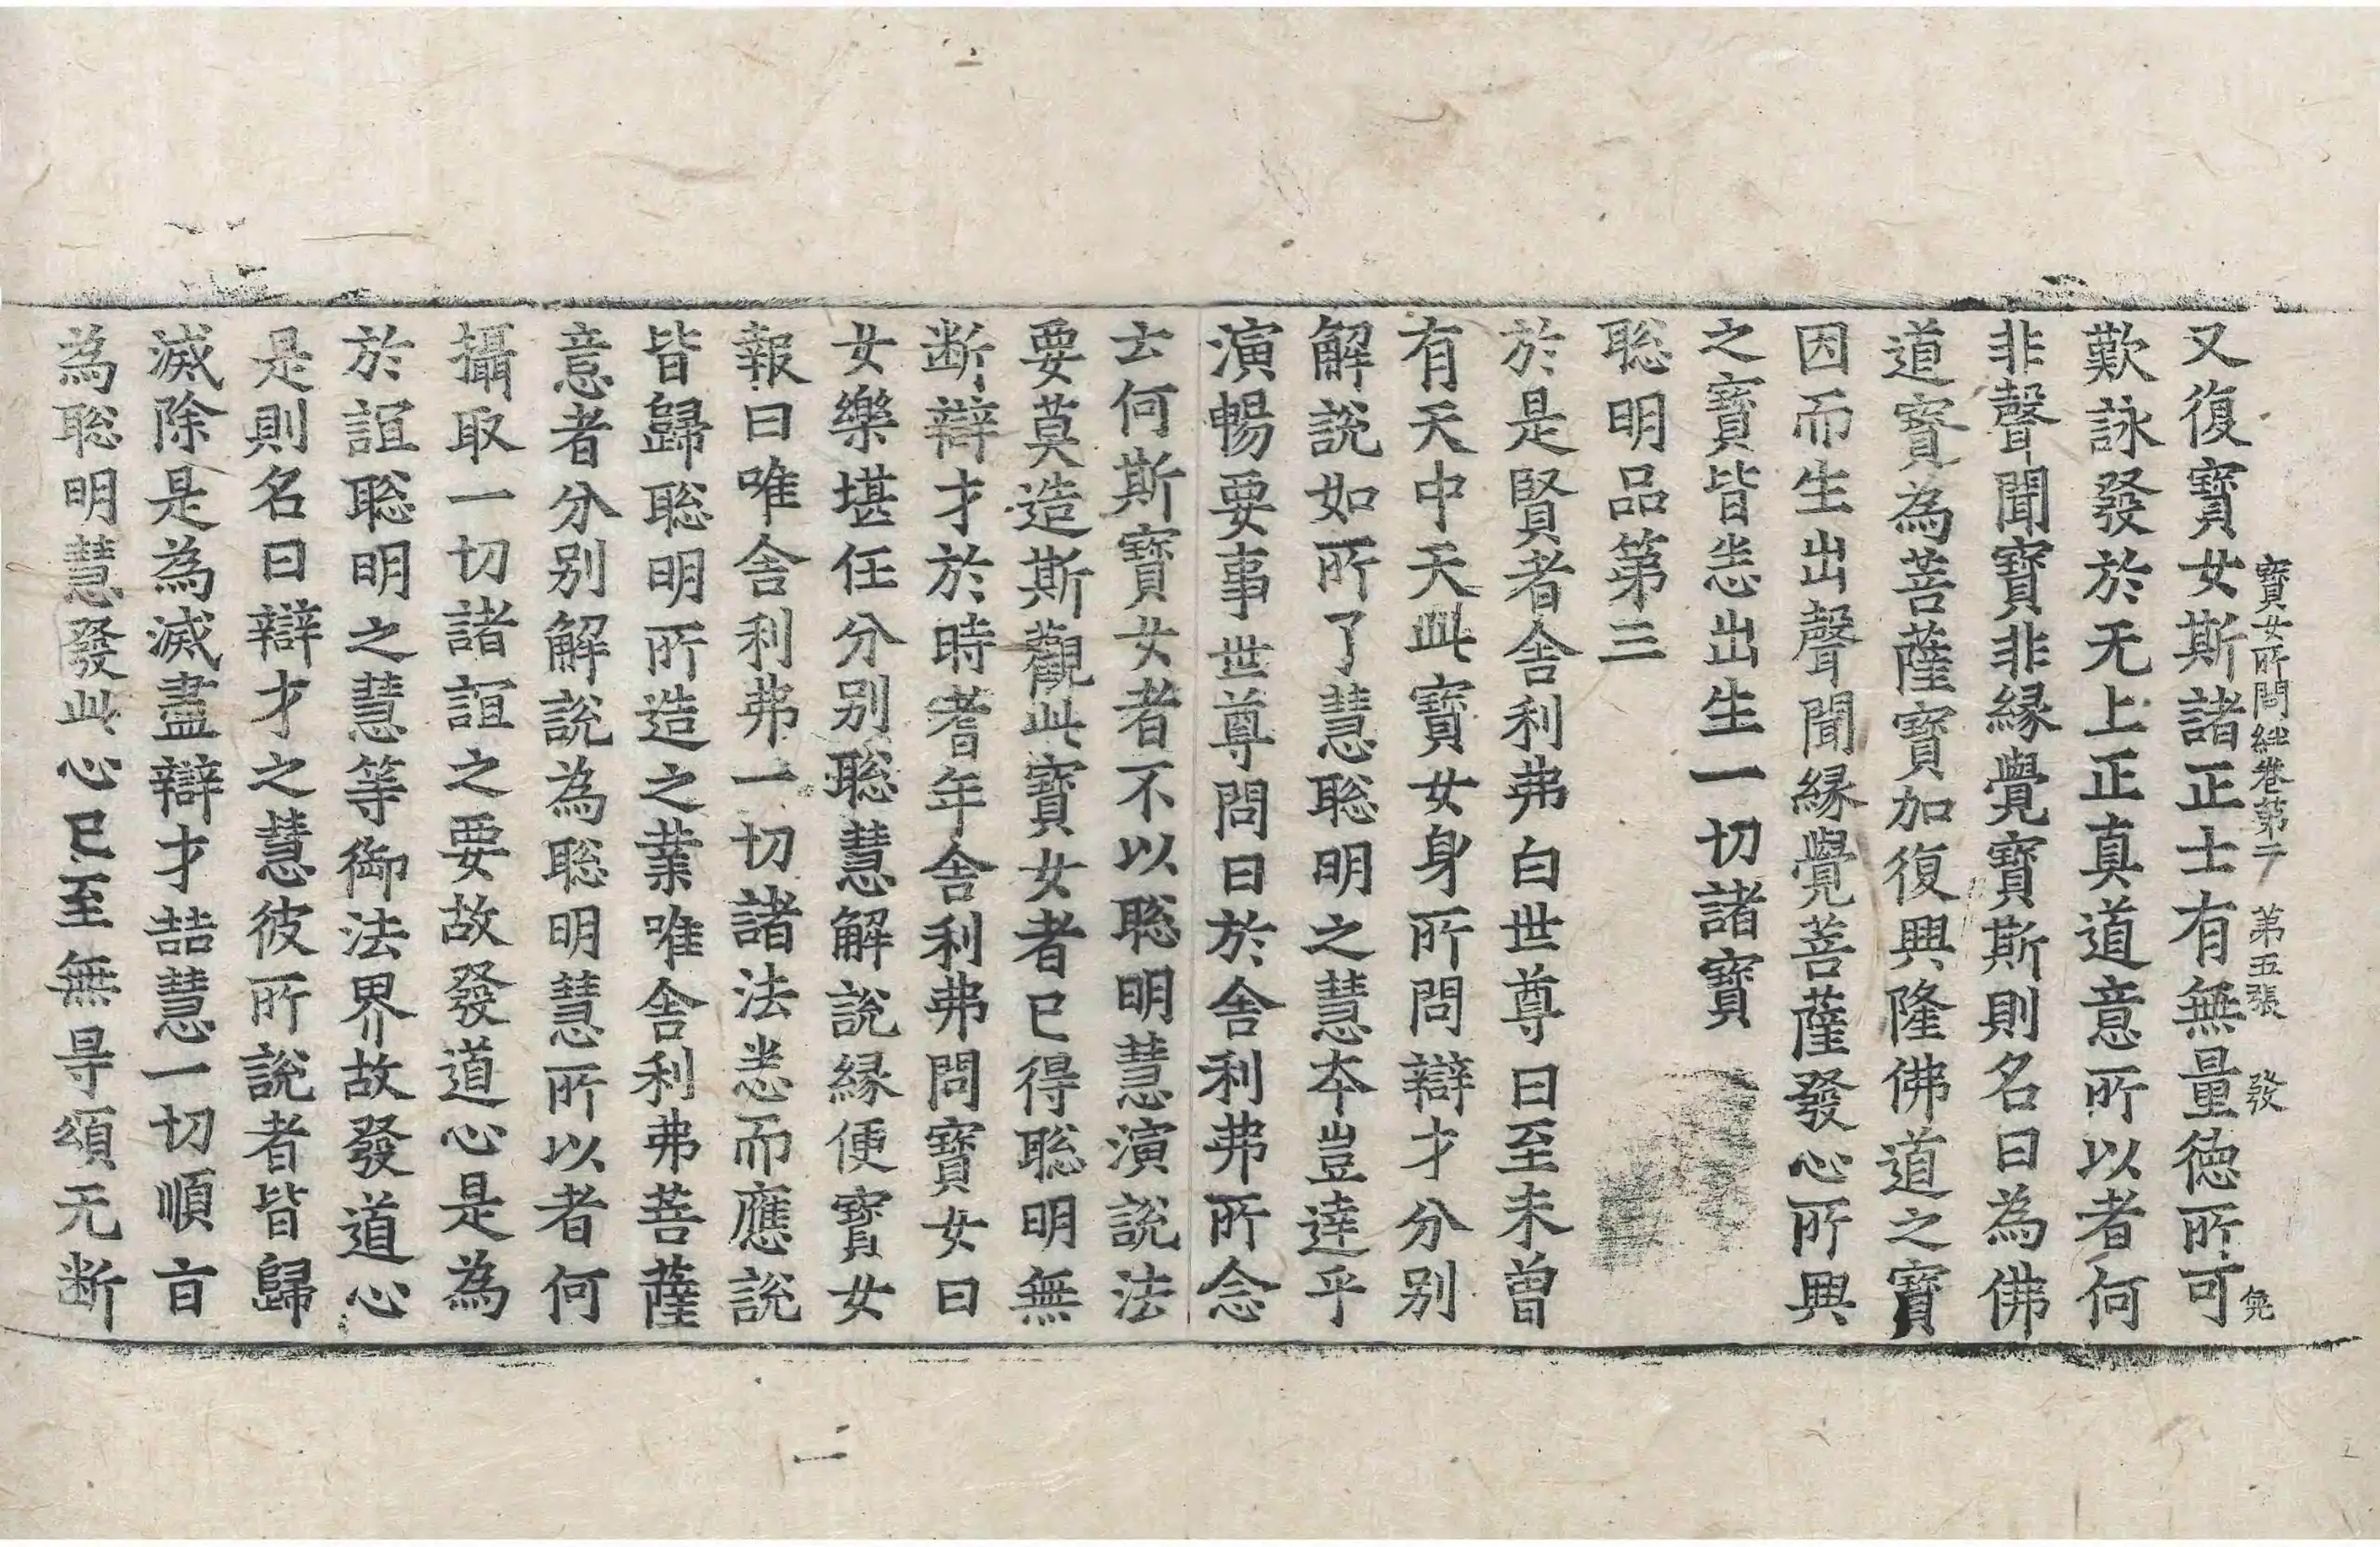 寶女所問經卷第二 第五張 發
又復寶女斯諸正士有無量德所可
歎詠發於无上正真道意所以者何
非聲聞寶非緣覺寶斯則名曰為佛
道寶為菩薩寶加復興隆佛道之寶
因而生出聲聞緣覺菩薩發心所興
之寶皆悉出生一切諸寶
聡明品第三
於是賢者舍利弗白世尊曰至未曾
有天中天此寶女身所問辯才分别
解說如所了慧聡明之慧夲豈達乎
演暢要事世尊問曰於舍利弗所念
云何斯寶女者不以聡明慧演說法
要莫造斯觀此寶女者已得聡明無
断辯才於時耆年舍利弗問寶女曰
女樂堪任分别聡慧解說緣便寶女
報曰唯舍利弗一切諸法悉而應說
皆歸聡明所造之業唯舍利弗菩薩
意者分别解說為聡明慧所以者何
攝取一切諸誼之要故發道心是為
於誼聡明之慧等御法界故發道心
是則名曰辯才之慧彼所說者皆歸
滅除是為滅盡辯才喆慧一切順言
為聡明慧發此心已至無㝵頌无断